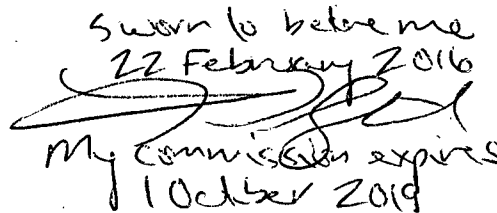 Sworn to before me
22 February 2016
My commission expires
1 October 2019